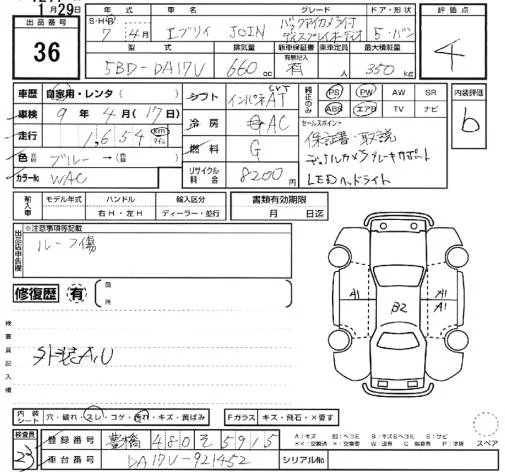 1月29日
出品番号
36
年式
S・H・R
7年 4月
車名
エブリイ JOIN
グレード
バックアイカメラ付
ディスプレイオーディオ
ドア・形状
5・バン
評価点
4
型式
5BD-DA17V
排気量
660cc
新車保証書
有無記入
有
乗車定員
人
最大積載量
350kg
車歴 自家用・レンタ( )
車検 9年 4月(17日)
走行 1,654 km マイル
色 元色 ブルー→ 色替( )
カラーNo WAC
シフト インパネAT CVT
冷房 AC
燃料 G
リサイクル料金 8200円
純正のみ
PS PW AW SR
ABS エアB TV ナビ
セールスポイント
保証書・取説
デュアルカメラブレーキサポート
LEDヘッドライト
内装評価
b
輸入車
モデル年式 ハンドル 輸入区分
右H・左H ディーラー・並行
書類有効期限
月 日迄
出品店申告欄
※注意事項等記載
ルーフ傷
修復歴 有 箇所
検査員記入欄
外装A,U
A1 B2 A1
A1
内装シート 穴・破れ・スレ・コゲ・汚れ・キズ・黄ばみ
Fガラス キズ・飛石・×要す
検査員
23
登録番号 豊橋 480 そ 5915
車台番号 DA17V-921452
シリアルNo
スペア